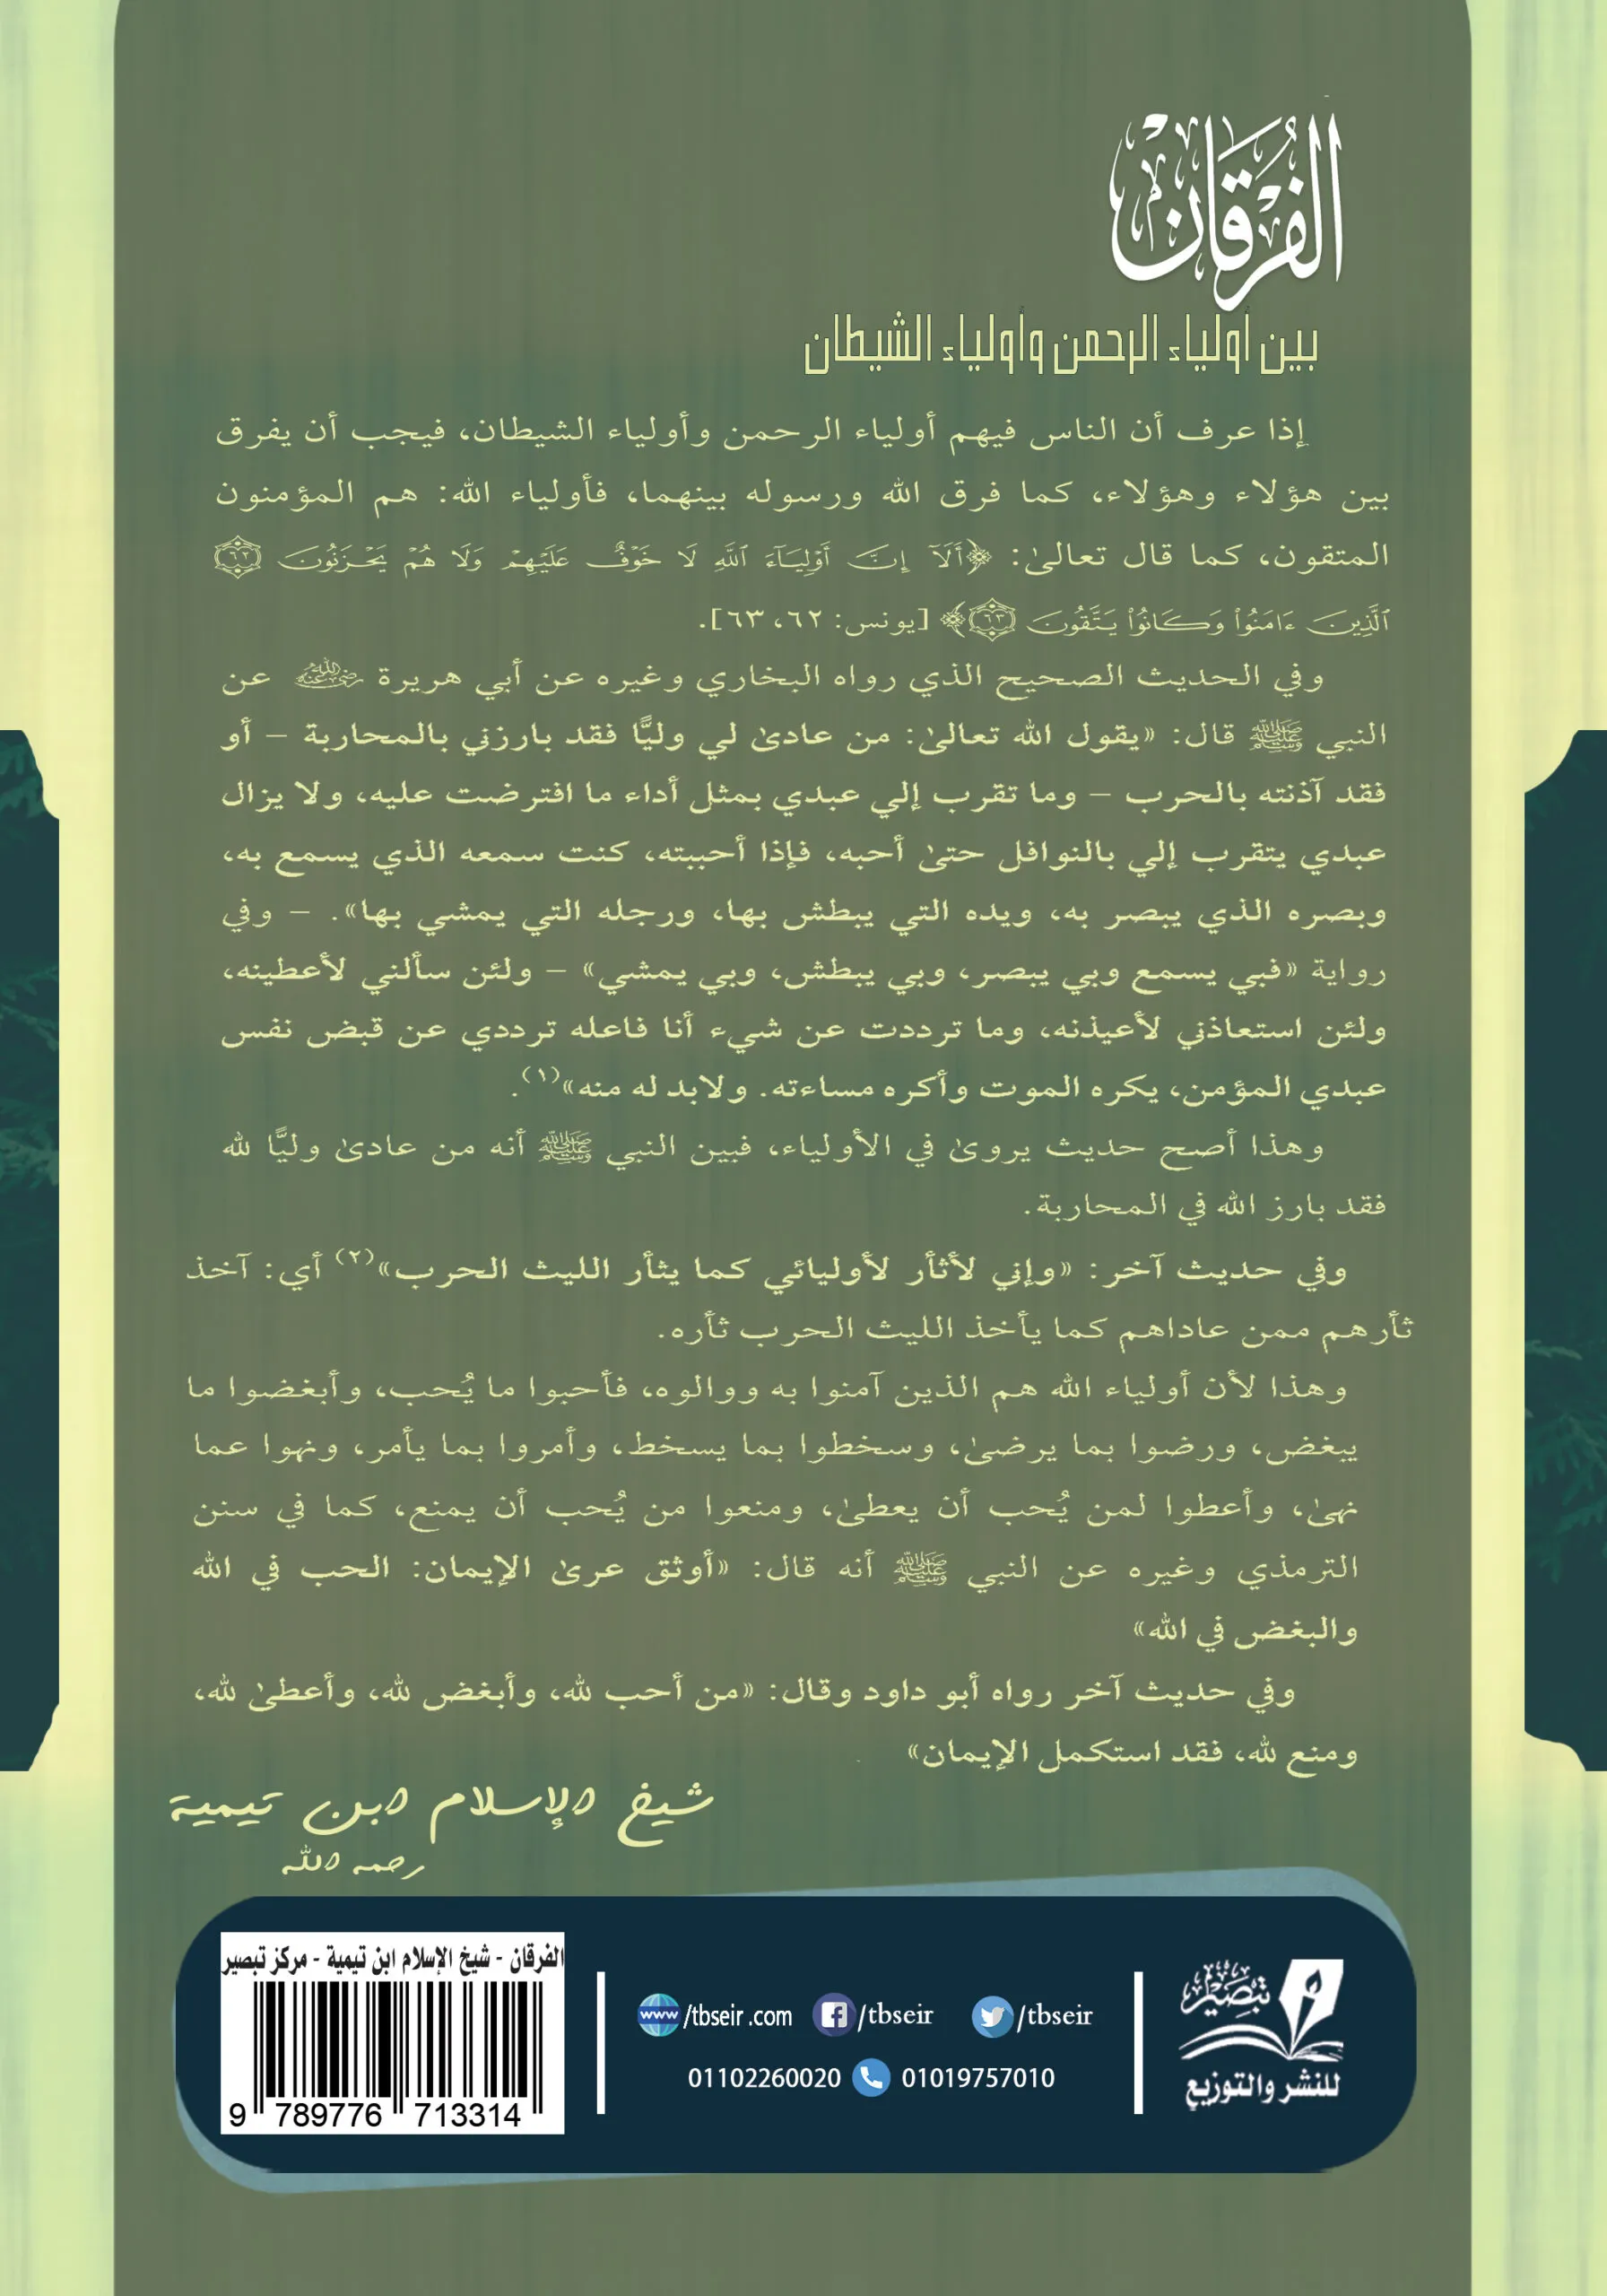 الفُرْقَانُ
بين أولياء الرحمن وأولياء الشيطان
إذا عرف أن الناس فيهم أولياء الرحمن وأولياء الشيطان، فيجب أن يفرق
بين هؤلاء وهؤلاء، كما فرق الله ورسوله بينهما، فأولياء الله: هم المؤمنون
المتقون، كما قال تعالىٰ: ﴿أَلَآ إِنَّ أَوْلِيَآءَ ٱللَّهِ لَا خَوْفٌ عَلَيْهِمْ وَلَا هُمْ يَحْزَنُونَ ٦٢
ٱلَّذِينَ ءَامَنُوا۟ وَكَانُوا۟ يَتَّقُونَ ٦٣﴾ [يونس: ٦٢، ٦٣].
وفي الحديث الصحيح الذي رواه البخاري وغيره عن أبي هريرة رضي الله عنه عن
النبي ﷺ قال: «يقول الله تعالىٰ: من عادىٰ لي وليًّا فقد بارزني بالمحاربة – أو
فقد آذنته بالحرب – وما تقرب إلي عبدي بمثل أداء ما افترضت عليه، ولا يزال
عبدي يتقرب إلي بالنوافل حتىٰ أحبه، فإذا أحببته، كنت سمعه الذي يسمع به،
وبصره الذي يبصر به، ويده التي يبطش بها، ورجله التي يمشي بها». – وفي
رواية «فبي يسمع وبي يبصر، وبي يبطش، وبي يمشي» – ولئن سألني لأعطينه،
ولئن استعاذني لأعيذنه، وما ترددت عن شيء أنا فاعله ترددي عن قبض نفس
عبدي المؤمن، يكره الموت وأكره مساءته. ولابد له منه»(١).
وهذا أصح حديث يروىٰ في الأولياء، فبين النبي ﷺ أنه من عادىٰ وليًّا لله
فقد بارز الله في المحاربة.
وفي حديث آخر: «وإني لأثأر لأوليائي كما يثأر الليث الحرب»(٢) أي: آخذ
ثأرهم ممن عاداهم كما يأخذ الليث الحرب ثأره.
وهذا لأن أولياء الله هم الذين آمنوا به ووالوه، فأحبوا ما يُحب، وأبغضوا ما
يبغض، ورضوا بما يرضىٰ، وسخطوا بما يسخط، وأمروا بما يأمر، ونهوا عما
نهىٰ، وأعطوا لمن يُحب أن يعطىٰ، ومنعوا من يُحب أن يمنع، كما في سنن
الترمذي وغيره عن النبي ﷺ أنه قال: «أوثق عرىٰ الإيمان: الحب في الله
والبغض في الله»
وفي حديث آخر رواه أبو داود وقال: «من أحب لله، وأبغض لله، وأعطىٰ لله،
ومنع لله، فقد استكمل الإيمان»
شيخ الإسلام ابن تيمية
رحمه الله
تبصير
للنشر والتوزيع
/tbseir.com /tbseir /tbseir
01102260020 01019757010
الفرقان - شيخ الإسلام ابن تيمية - مركز تبصير
9 789776 713314